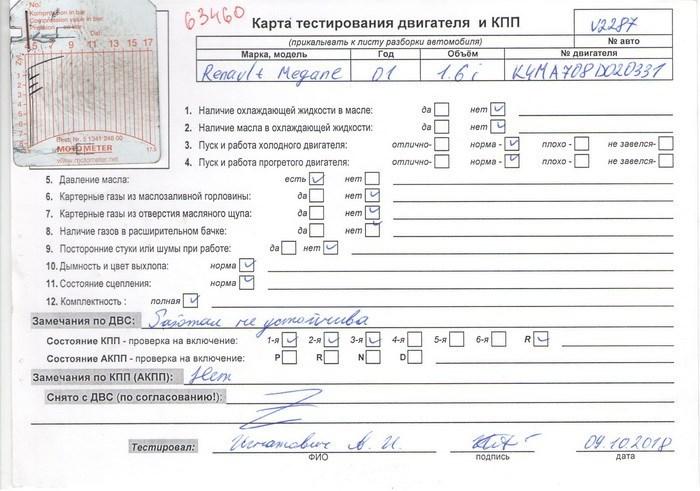 No:
Kompression in bar
Compression value in bar
Pression
Dat:
4,5 7 9 11 13 15 17
Best. Nr. 5 1341 246 00
MOTOMETER
www.motometer.net
63460
Карта тестирования двигателя и КПП
V2287
(прикалывать к листу разборки автомобиля)
№ авто
Марка, модель Год Объём № двигателя
Renault Megane 01 1.6i K4MA708D020331
1. Наличие охлаждающей жидкости в масле: да нет
2. Наличие масла в охлаждающей жидкости: да нет
3. Пуск и работа холодного двигателя: отлично- норма - плохо - не завелся-
4. Пуск и работа прогретого двигателя: отлично- норма - плохо - не завелся-
5. Давление масла: есть нет
6. Картерные газы из маслозаливной горловины: да нет
7. Картерные газы из отверстия масляного щупа: да нет
8. Наличие газов в расширительном бачке: да нет
9. Посторонние стуки или шумы при работе: да нет
10. Дымность и цвет выхлопа: норма
11. Состояние сцепления: норма
12. Комплектность : полная
Замечания по ДВС: Работал не устойчиво
Состояние КПП - проверка на включение: 1-я 2-я 3-я 4-я 5-я 6-я R
Состояние АКПП - проверка на включение: P R N D
Замечания по КПП (АКПП): Нет
Снято с ДВС (по согласованию!):
Тестировал: Игнатович А. И. 09.10.2018
ФИО подпись дата